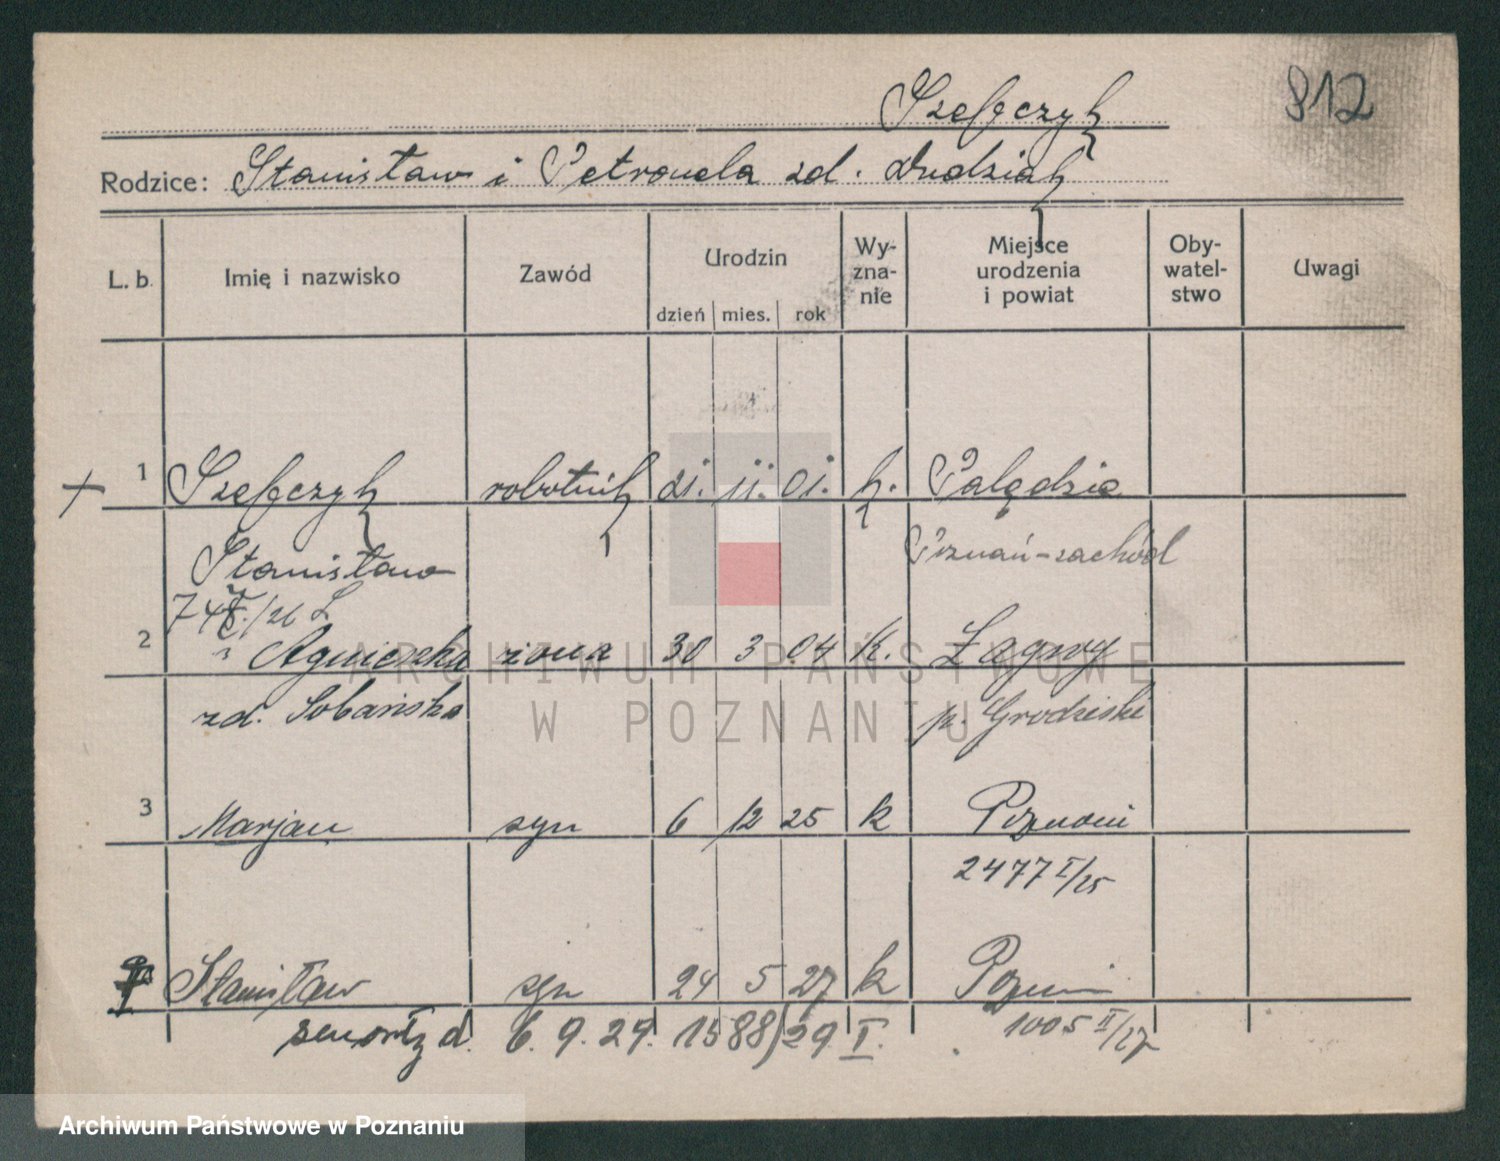 Szefczyk 912
Rodzice: Stanisław i Petronela zd. Dudziak
L. b. Imię i nazwisko Zawód Urodzin dzień mies. rok Wy-zna-nie Miejsce urodzenia i powiat Oby-watel-stwo Uwagi
+ 1 Szefczyk robotnik 21. 11. 01. k. Palędzie
Stanisław Poznań-zachód
2 Agnieszka żona 30 3 04 k. Łagwy
zd. Sobańska p. Grodzisk
3 Marjan syn 6 12 25 k Poznań
2477 I/25
Stanisław syn 24 5 27 k Poznań
1005 II/27
zmarł d. 6. 9. 29. 1588/29. I.
ARCHIWUM PAŃSTWOWE
W POZNANIU
Archiwum Państwowe w Poznaniu